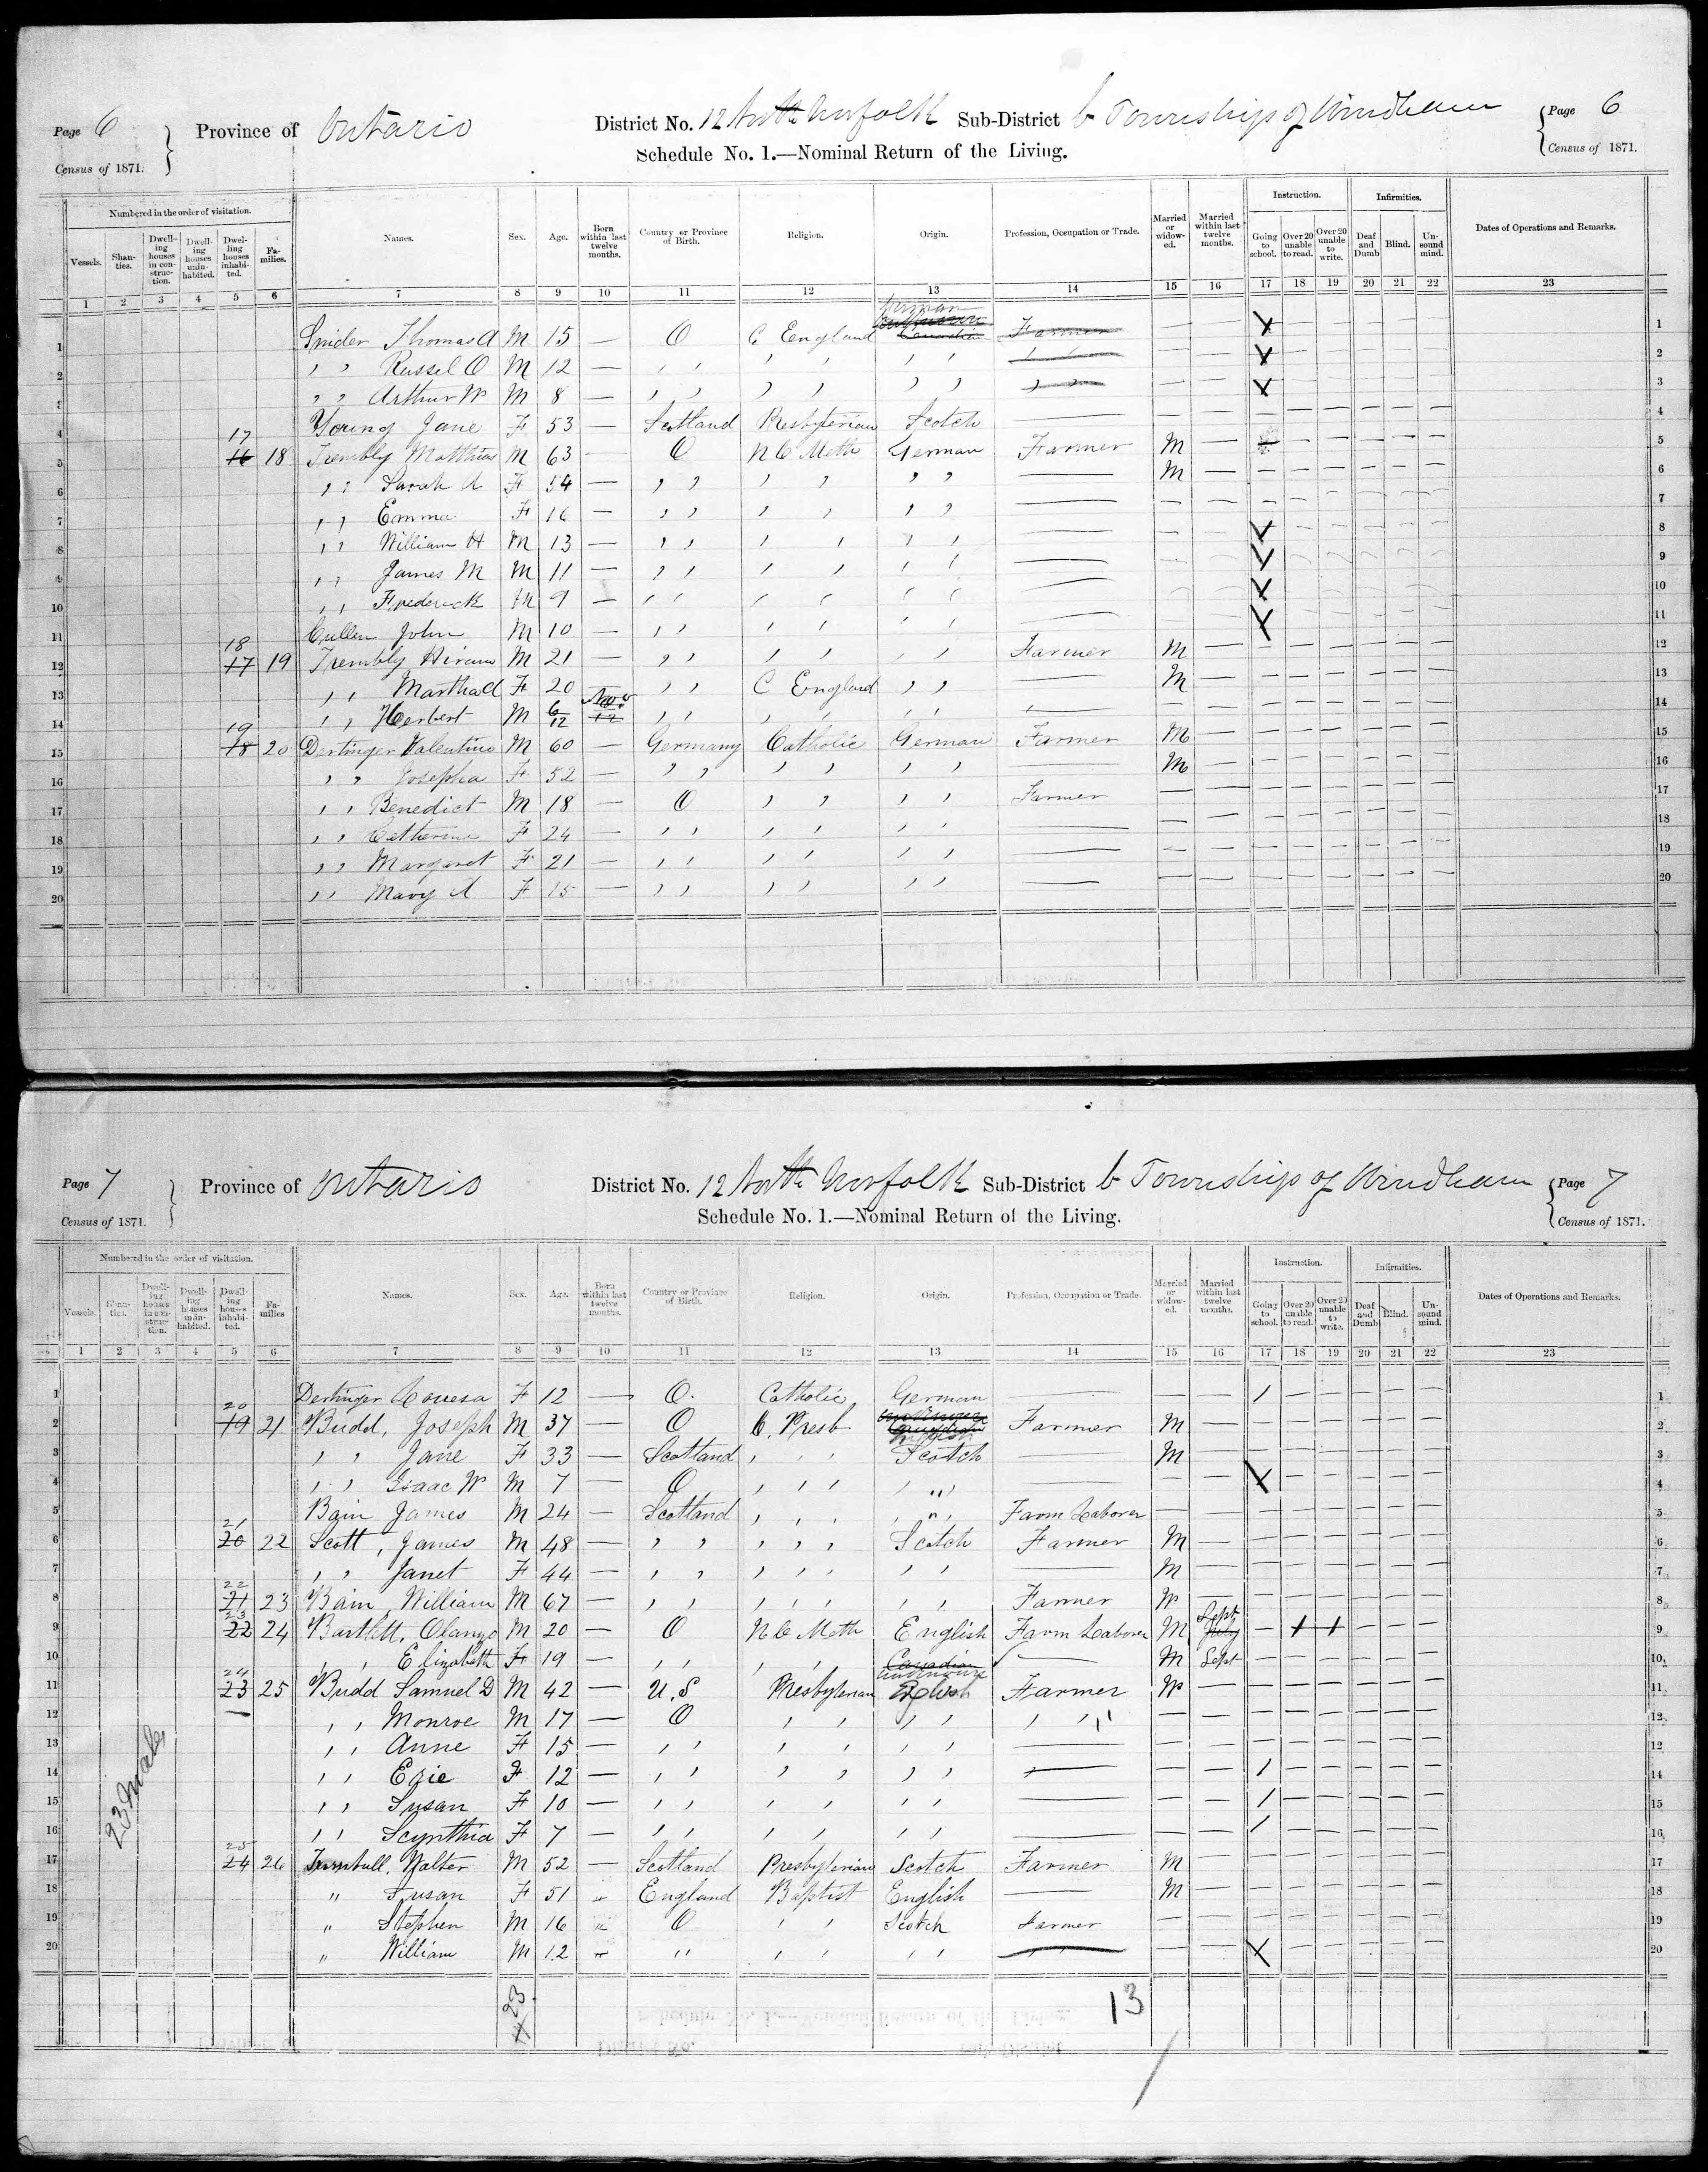 Page 6 Province of Ontario District No. 12 North Norfolk Sub-District b Township of Windham Page 6
Census of 1871. Schedule No. 1.—Nominal Return of the Living. Census of 1871.
Numbered in the order of visitation. Instruction. Infirmities.
Vessels. Shanties. Dwelling houses in construction. Dwelling houses uninhabited. Dwelling houses inhabited. Families. Names. Sex. Age. Born within last twelve months. Country or Province of Birth. Religion. Origin. Profession, Occupation or Trade. Married or widowed. Married within last twelve months. Going to school. Over 20 unable to read. Over 20 unable to write. Deaf and Dumb Blind. Unsound mind. Dates of Operations and Remarks.
1 2 3 4 5 6 7 8 9 10 11 12 13 14 15 16 17 18 19 20 21 22 23
1 Snider Thomas A M 15 — O C England German Farmer — — X 1
2 " " Russel O M 12 — " " " " " " " " — — X 2
3 " " Arthur W M 8 — " " " " " " " " — — X 3
4 Young Jane F 53 — Scotland Presbyterian Scotch — — — 4
5 17 16 18 Trembly Matthias M 63 — O N C Meth German Farmer M — 5
6 " " Sarah A F 54 — " " " " " " — M — 6
7 " " Emma F 16 — " " " " " " — — — 7
8 " " William H M 13 — " " " " " " — — X 8
9 " " James M M 11 — " " " " " " — — X 9
10 " " Frederick M 9 — " " " " " " — — X 10
11 Cullen John M 10 — " " " " " " — — X 11
12 18 17 19 Trembly Hiram M 21 — " " " " " " Farmer M — 12
13 " " Martha A F 20 — " " C England " " — M — 13
14 " " Herbert M 6/12 Nov " " " " " " — — — 14
15 19 18 20 Dertinger Valentine M 60 — Germany Catholic German Farmer M — 15
16 " " Josepha F 52 — " " " " " " — M — 16
17 " " Benedict M 18 — O " " " " Farmer — — 17
18 " " Catherine F 24 — " " " " " " — — — 18
19 " " Margaret F 21 — " " " " " " — — — 19
20 " " Mary A F 15 — " " " " " " — — — 20
Page 7 Province of Ontario District No. 12 North Norfolk Sub-District b Township of Windham Page 7
Census of 1871. Schedule No. 1.—Nominal Return of the Living. Census of 1871.
Numbered in the order of visitation. Instruction. Infirmities.
Vessels. Shanties. Dwelling houses in construction. Dwelling houses uninhabited. Dwelling houses inhabited. Families Names. Sex. Age. Born within last twelve months. Country or Province of Birth. Religion. Origin. Profession, Occupation or Trade. Married or widowed. Married within last twelve months. Going to school. Over 20 unable to read. Over 20 unable to write. Deaf and Dumb Blind. Unsound mind. Dates of Operations and Remarks.
1 2 3 4 5 6 7 8 9 10 11 12 13 14 15 16 17 18 19 20 21 22 23
1 Dertinger F 12 — O. Catholic German — — — / 1
2 20 19 21 Budd, Joseph M 37 — O C. Presb Farmer M — 2
3 " " Jane F 33 — Scotland " " " Scotch — M — 3
4 " " Isaac W M 7 — O " " " " " — — — X 4
5 Bain James M 24 — Scotland " " " " " Farm Laborer — — 5
6 21 20 22 Scott, James M 48 — " " " " " Scotch Farmer M — 6
7 " " Janet F 44 — " " " " " " " — M — 7
8 22 21 23 Bain, William M 67 — " " " " " " " Farmer W — 8
9 23 22 24 Bartlett, Olanzo M 20 — O N C Meth English Farm Laborer M Sept July — X X 9
10 " " Elizabeth F 19 — " " " " Canadian — M Sept 10
11 24 23 25 Budd Samuel D M 42 — U.S Presbyterian Farmer W — 11
12 " " Monroe M 17 — O " " " " " " — — 12
13 " " Anne F 15 — " " " " " " — — — 12
14 " " F 12 — " " " " " " — — — / 14
15 " " Susan F 10 — " " " " " " — — — / 15
16 " " Scynthia F 7 — " " " " " " — — — / 16
17 25 24 26 Turnbull, Walter M 52 — Scotland Presbyterian Scotch Farmer M — 17
18 " Susan F 51 " England Baptist English — M — 18
19 " Stephen M 16 " O " " Scotch Farmer — — 19
20 " William M 12 " " " " " " — — — X 20
23 Males
23
13